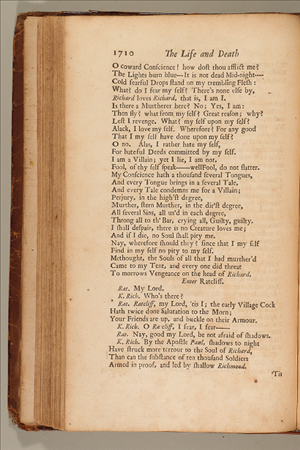 1710 The Life and Death
O coward Conscience! how dost thou afflict me?
The Lights burn blue—Is it not dead Mid-night—
Cold fearful Drops stand on my trembling Flesh:
What? do I fear my self? There's none else by,
Richard loves Richard, that is, I am I.
Is there a Murtherer here? No; Yes, I am:
Then fly! what from my self? Great reason; why?
Lest I revenge. What? my self upon my self?
Alack, I love my self. Wherefore? For any good
That I my self have done upon my self?
O no. Alas, I rather hate my self,
For hateful Deeds committed by my self.
I am a Villain; yet I lie, I am not.
Fool, of thy self speak——well Fool, do not flatter.
My Conscience hath a thousand several Tongues,
And every Tongue brings in a several Tale,
And every Tale condemns me for a Villain;
Perjury, in the high'st degree,
Murther, stern Murther, in the dir'st degree,
All several Sins, all us'd in each degree,
Throng all to th' Bar, crying all, Guilty, guilty.
I shall despair, there is no Creature loves me;
And if I die, no Soul shall pity me.
Nay, wherefore should they? since that I my self
Find in my self no pity to my self.
Methought, the Souls of all that I had murther'd
Came to my Tent, and every one did threat
To morrows Vengeance on the head of Richard.
Enter Ratcliff.
Rat. My Lord.
K. Rich. Who's there?
Rat. Ratcliff, my Lord, 'tis I; the early Village Cock
Hath twice done Salutation to the Morn;
Your Friends are up, and buckle on their Armour.
K. Rich. O Ratcliff, I fear, I fear——
Rat. Nay, good my Lord, be not afraid of shadows.
K. Rich. By the Apostle Paul, shadows to night
Have struck more terrour to the Soul of Richard,
Than can the substance of ten thousand Soldiers
Armed in proof, and led by shallow Richmond.
'Tis